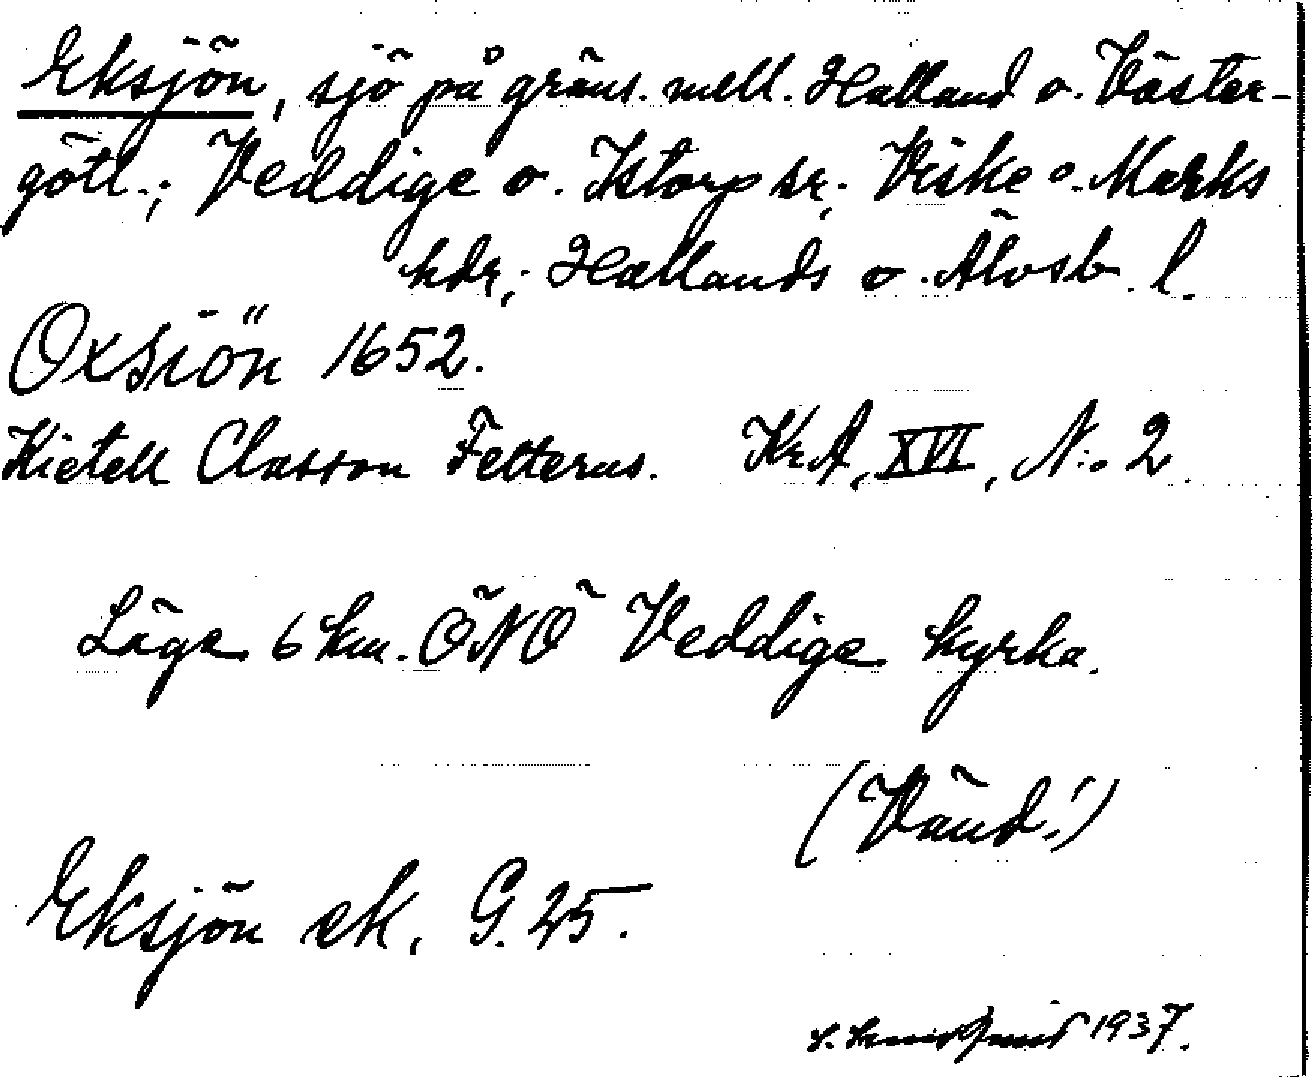 Eksjön, sjö på gräns. mell. Halland o. Väster-
götl.; Veddige o. Istorp sr; Viske o. Marks
hdr; Hallands o. Älvsb. l.
Oxsiön 1652.
Kietell Classon Felterus. KrA, XVI, N:o 2.
Läge 6 km. ÖNÖ Veddige kyrka.
(Vänd!)
Eksjön ek, G. 25.
1937.